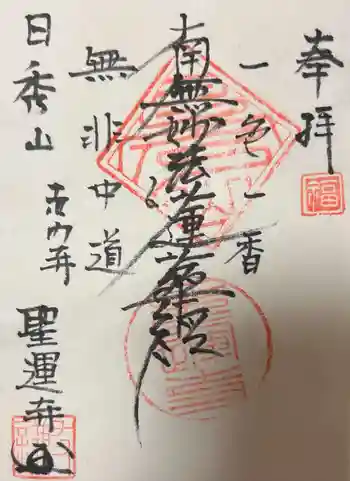 奉拝
一色一香
南無妙法蓮華経
無非中道
日秀山
聖運寺
福